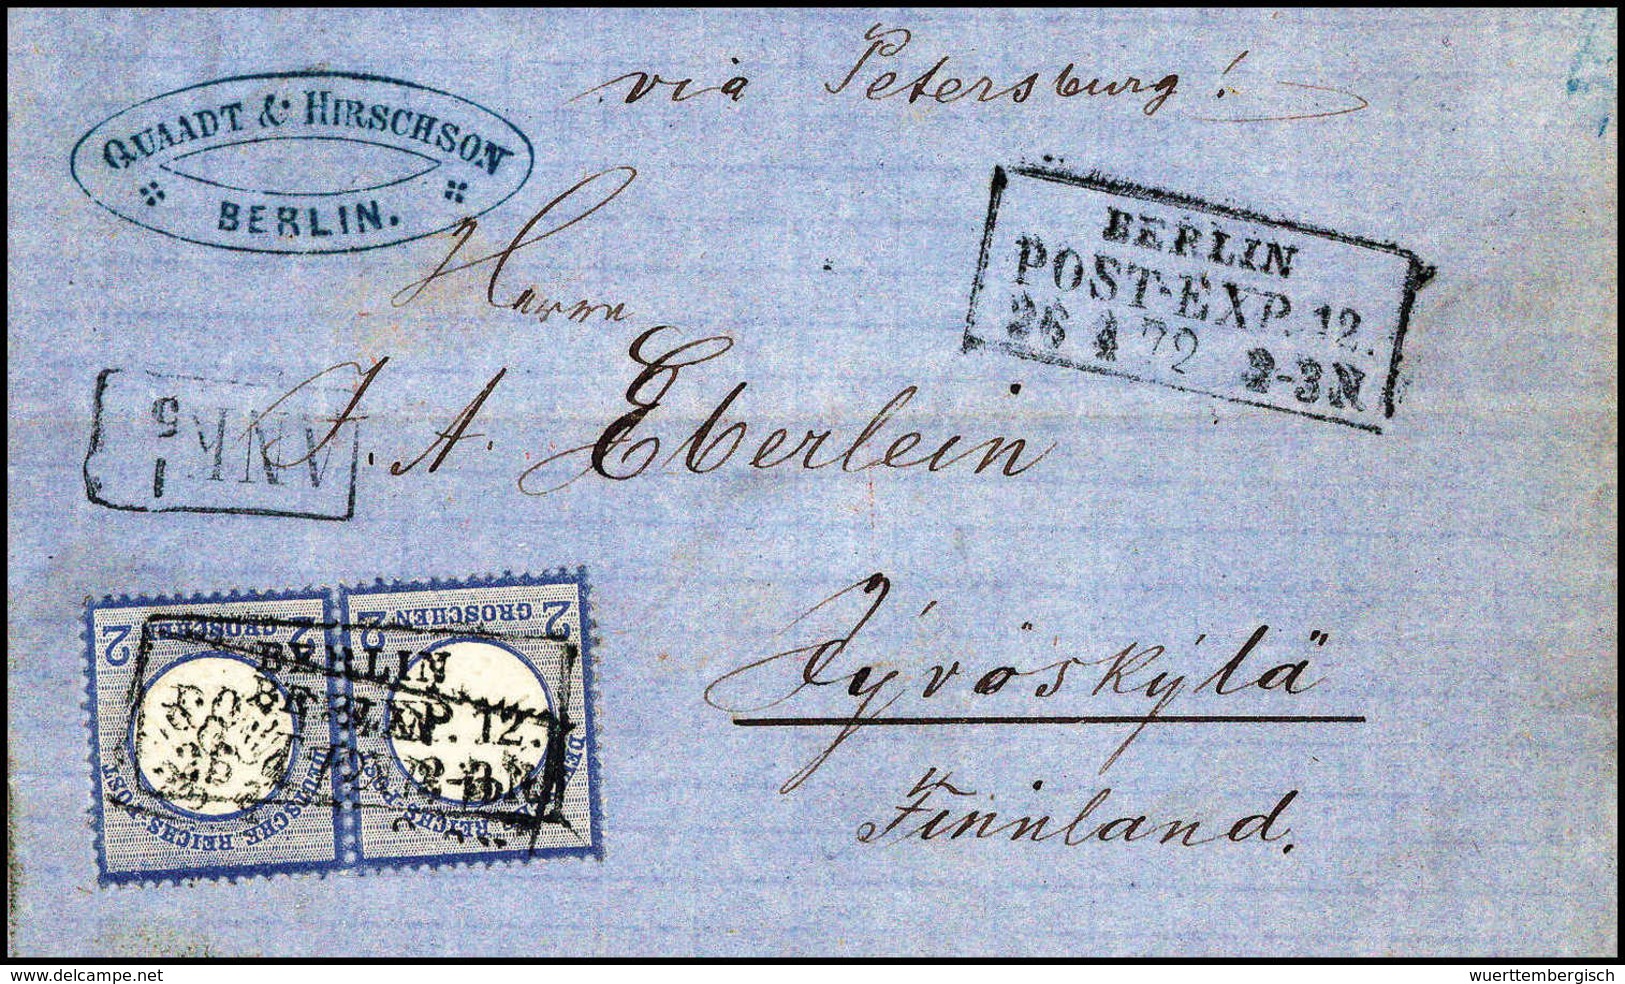 via Petersburg!
QUAADT & HIRSCHSON
BERLIN.
BERLIN
POST-EXP. 12.
26 4 72 2-3N
Herrn
J. A. Eberlein
ANK
1 5
Jyvöskylä
Finnland.
2 GROSCHEN 2
DEUTSCHE REICHS-POST
2 GROSCHEN 2
DEUTSCHE REICHS-POST
BERLIN
P. 12.
delcampe.net
wuerttembergisch